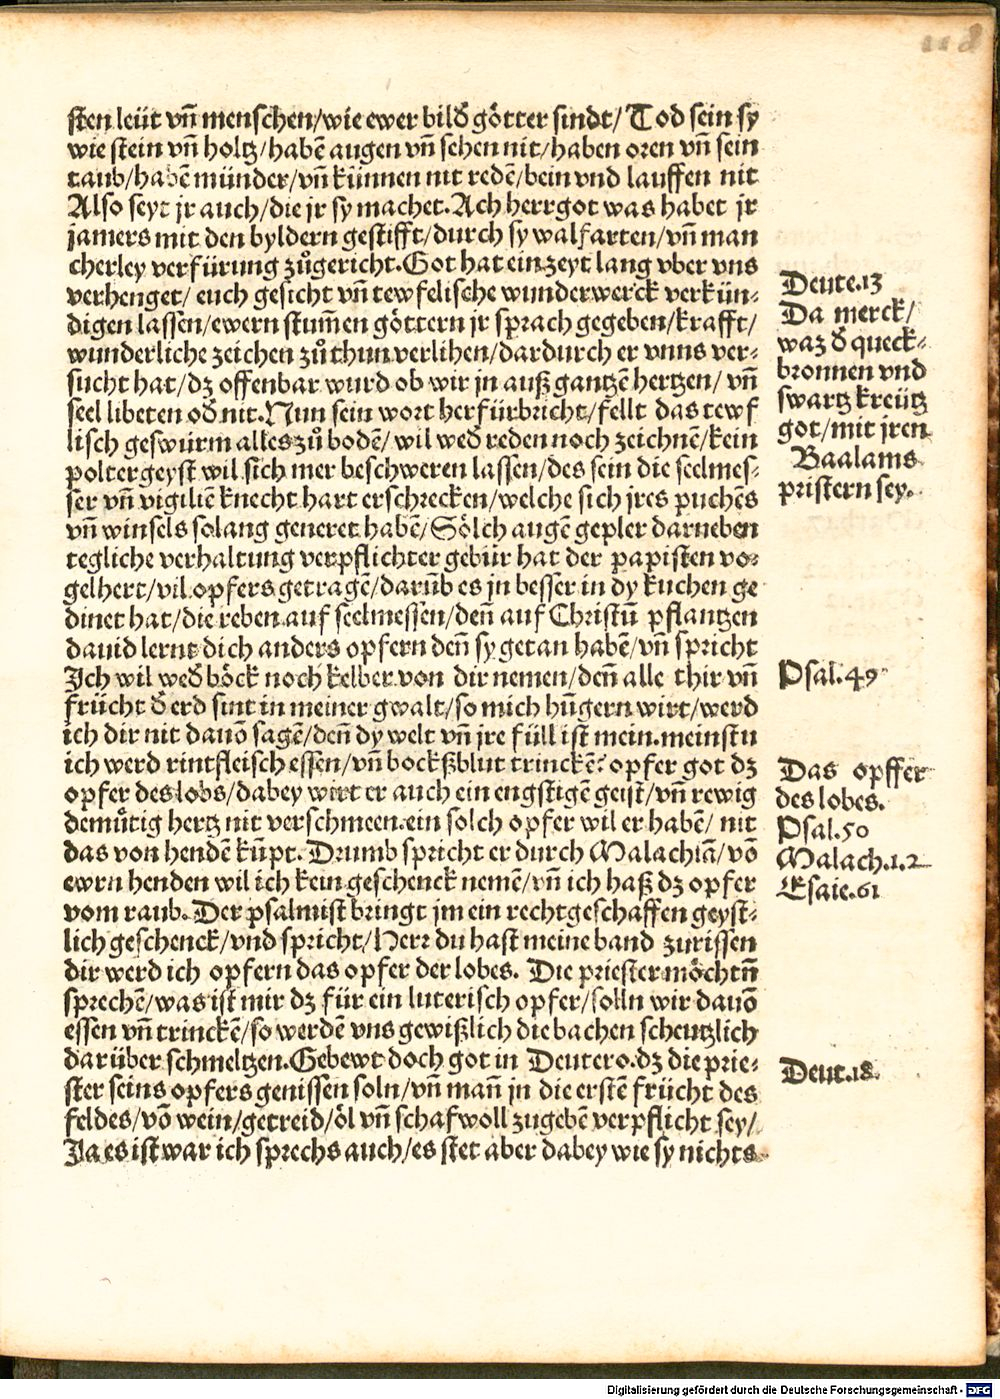 118
sten leüt vn̄ menschen/wie ewer bild̕ götter sindt/ Tod sein sy
wie stein vn̄ holtz/habē augen vn̄ sehen nit/haben oren vn̄ sein
taub/habē münder/vn̄ künnen nit redē/bein vnd lauffen nit
Also seyt jr auch/die jr sy machet. Ach herrgot was habet jr
jamers mit den byldern gestifft/durch sy walfarten/vn̄ man
cherley verfürung zůgericht. Got hat ein zeyt lang vber vns
verhenget/ euch gesicht vn̄ tewfelische wunderwerck verkün⸗
digen lassen/ewern stum̄en göttern jr sprach gegeben/krafft/
wunderliche zeichen zůthun verlihen/dardurch er vnns ver⸗
sucht hat/dz offenbar wurd ob wir jn auß gantzē hertzen/ vn̄
seel libeten od̕ nit. Nun sein wort herfürbricht/fellt das tewf
lisch geswürm alles zů bodē/ wil wed̕ reden noch zeichnē/kein
poltergeyst wil sich mer beschweren lassen/des sein die seelmes⸗
ser vn̄ vigiliē knecht hart erschrecken/welche sich jres puchēs
vn̄ winsels solang generet habē/ Sölch augē gepler darneben
tegliche verhaltung verpflichter gebür hat der papisten vo⸗
gelhert/vil opfers getragē/darūb es jn besser in dy kuchen ge
dinet hat/die reben auf seelmessen/den̄ auf Christū pflantzen
dauid lernt dich anders opfern den̄ sy getan habē/vn̄ spricht
Ich wil wed̕ böck noch kelber von dir nemen/den̄ alle thir vn̄
frücht d̕ erd sint in meiner gwalt/so mich hūgern wirt/werd
ich dir nit dauō sagē/den̄ dy welt vn̄ jre füll ist mein. meinstu
ich werd rintfleisch essen/vn̄ bockßblut trinckē? opfer got dz
opfer des lobs/dabey wirt er auch ein engstigē geist/vn̄ rewig
demůtig hertz nit verschmeen. ein solch opfer wil er habē/ nit
das von hendē kūpt. Drumb spricht er durch Malachiā/vō
ewrn henden wil ich kein geschenck nemē/vn̄ ich haß dz opfer
vom raub. Der psalmist bringt jm ein rechtgeschaffen geyst⸗
lich geschenck/vnd spricht/Herr du hast meine band zurissen
dir werd ich opfern das opfer der lobes. Die priester möchtn̄
sprechē/was ist mir dz für ein luterisch opfer/solln wir dauō
essen vn̄ trinckē/so werdē vns gewißlich die bachen scheutzlich
darüber schmeltzen. Gebewt doch got in Deutero. dz die prie⸗
ster seins opfers genissen soln/vn̄ man̄ jn die erstē frücht des
feldes/vō wein/getreid/öl vn̄ schafwoll zugebē verpflicht sey/
Ja es ist war ich sprechs auch/es stet aber dabey wie sy nichts
Deute.13
Da merck/
waz d̕ queck⸗
bronnen vnd
swartz kreütz
got/mit jren
Baalams
pristern sey.
Psal.49
Das opffer
des lobes.
Psal.50
Malach.1.2
Esaie.61
Deut.18.
Digitalisierung gefördert durch die Deutsche Forschungsgemeinschaft - DFG